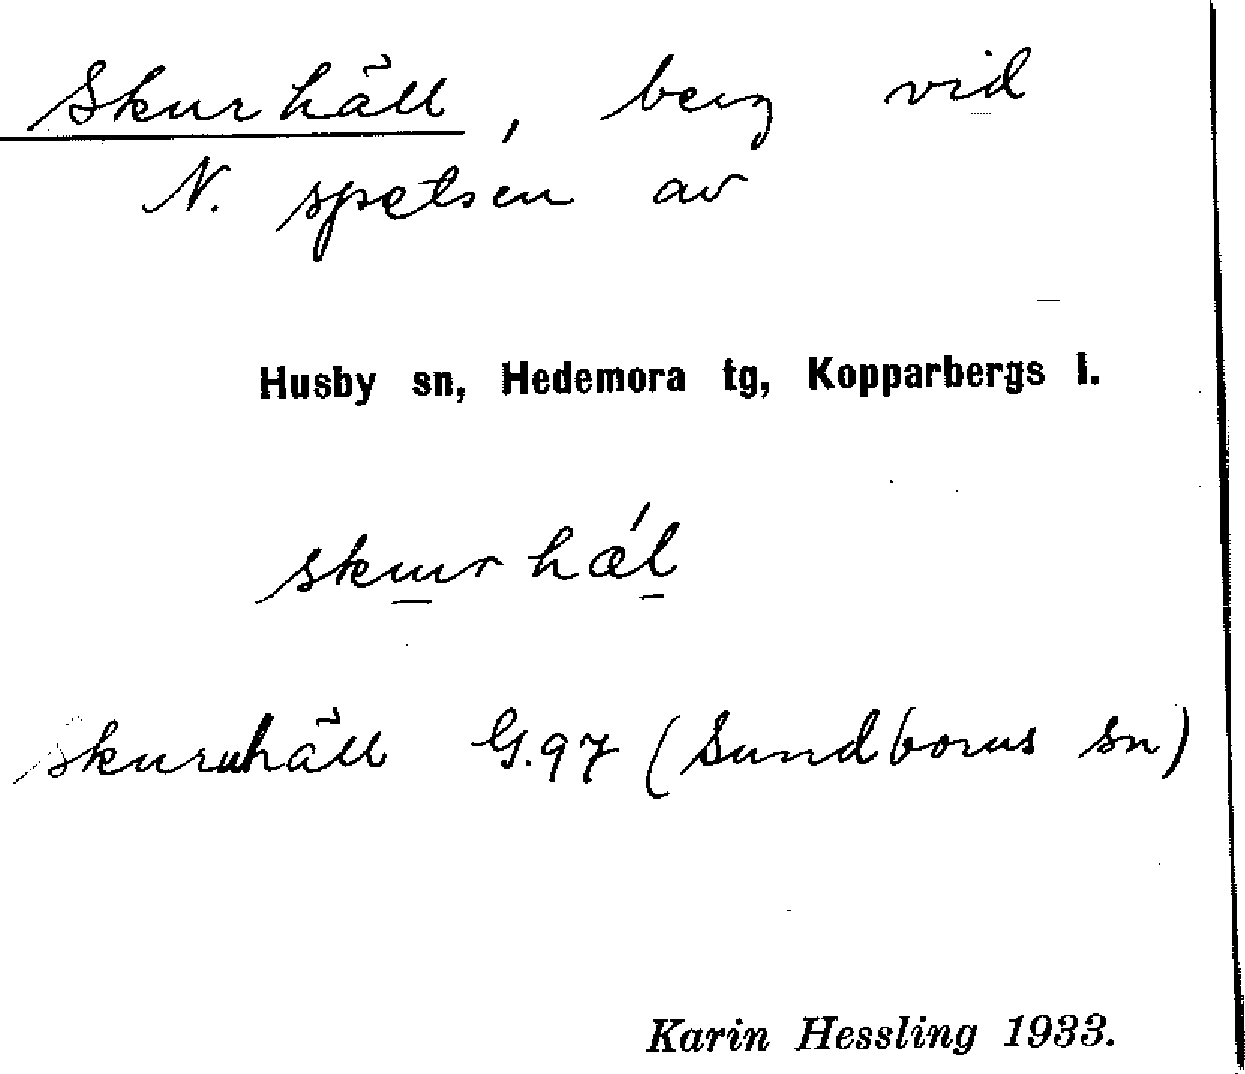 Skurhäll, berg vid
N. spetsen av
Husby sn, Hedemora tg, Kopparbergs l.
skurhǽl
Skuruhäll G.97 (Sundborns sn)
Karin Hessling 1933.